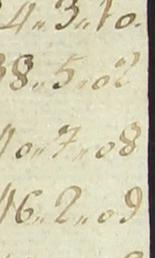 4„3„10.
38„5„02
10„7„08
16„2„09